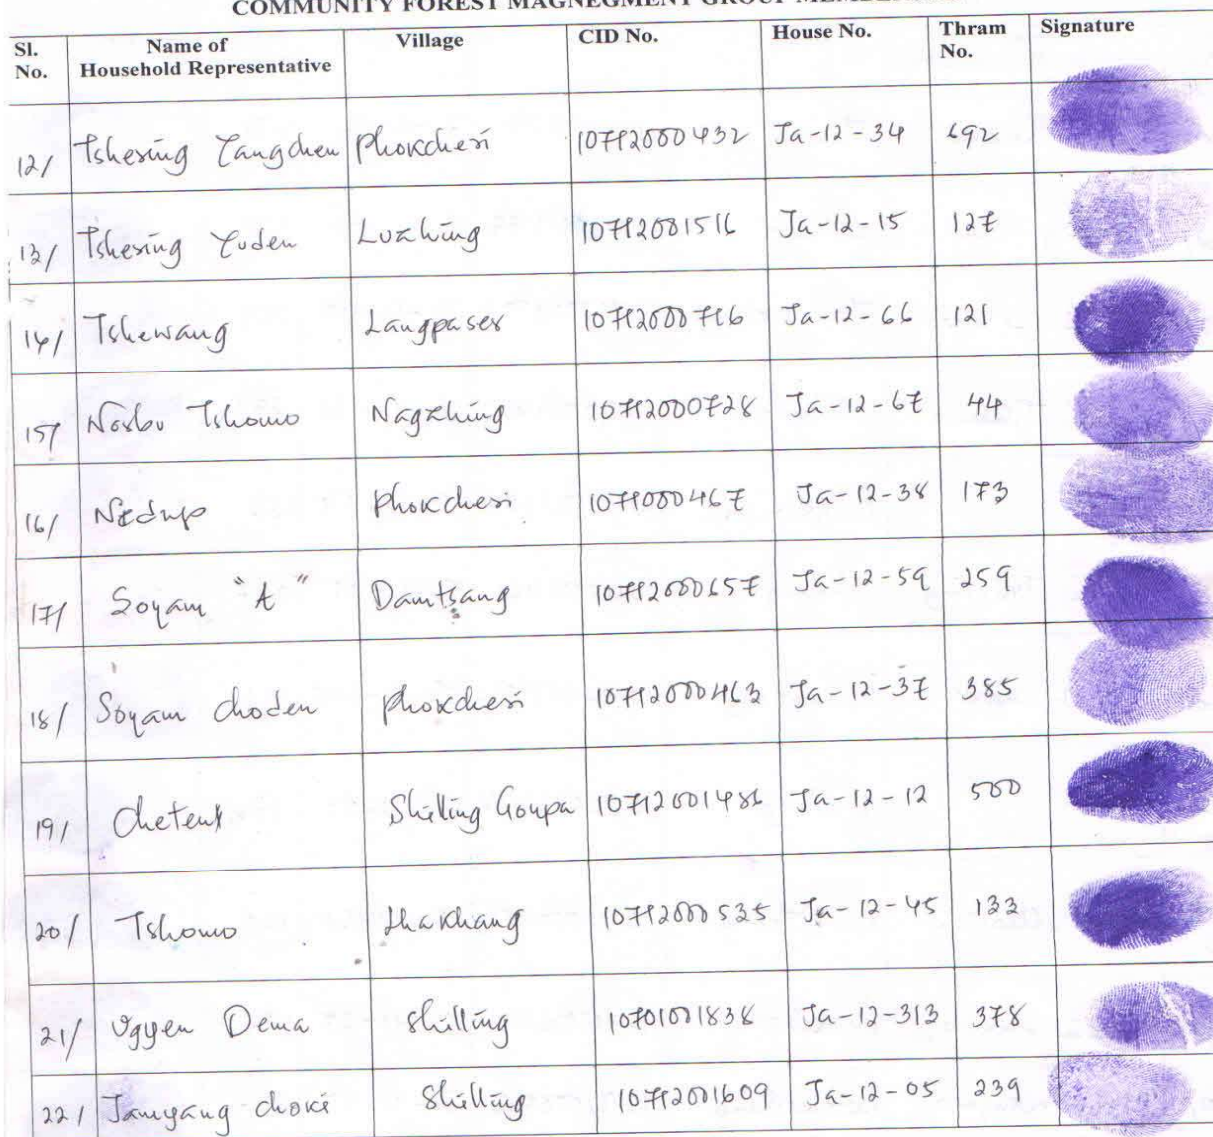 COMMUNITY FOREST MAGNEGMENT GROUP
Sl. No. Name of Household Representative Village CID No. House No. Thram No. Signature
12/ Tshering Yangchen Phokcheri 10712000432 Ja-12-34 692
13/ Tshering Yuden Luzhing 10712001516 Ja-12-15 127
14/ Tshewang Langpaser 10712000716 Ja-12-66 121
15/ Norbu Tshomo Nagzhing 10712000728 Ja-12-67 44
16/ Nedup Phokcheri 1071000467 Ja-12-38 173
17/ Sonam "A" Damtsang 10712000657 Ja-12-59 259
18/ Sonam choden Phokcheri 10712000463 Ja-12-37 385
19/ Shilling Goupa 10712001486 Ja-12-12 500
20/ Tshomo Lhakhang 10712000535 Ja-12-45 133
21/ Ugyen Dema Shilling 10701001838 Ja-12-313 378
22/ Jamyang choki Shilling 10712001609 Ja-12-05 239